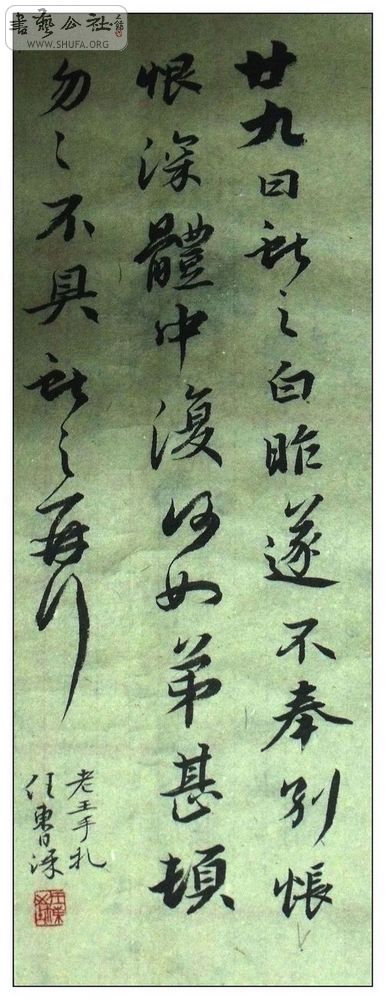 廿九日獻之白昨遂不奉別悵
恨深體中復何如弟甚頓
勿〻不具獻之再拜
老王手札
任東
書藝公社
WWW.SHUFA.ORG